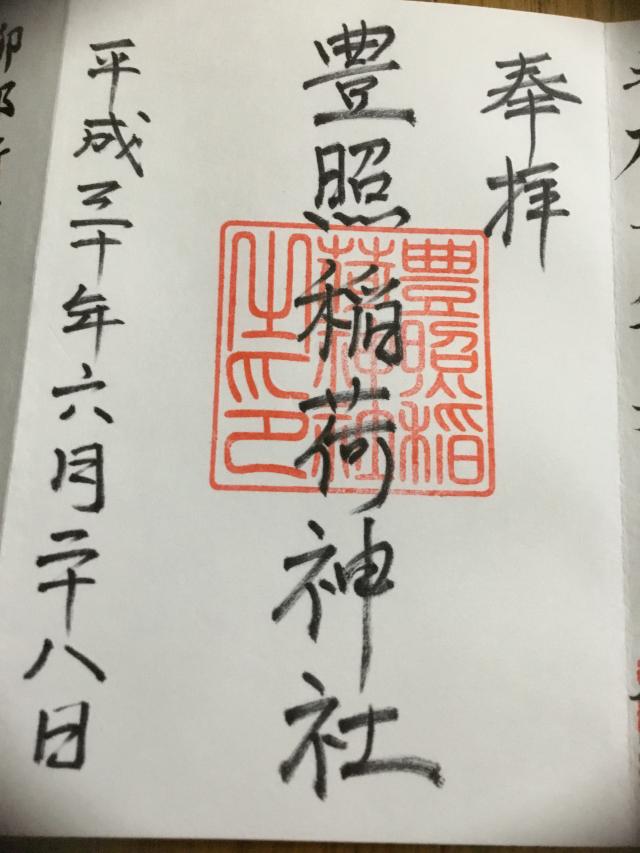 奉拝
豊照稲荷神社
豊照稲
荷神社
之印
平成三十年六月二十八日